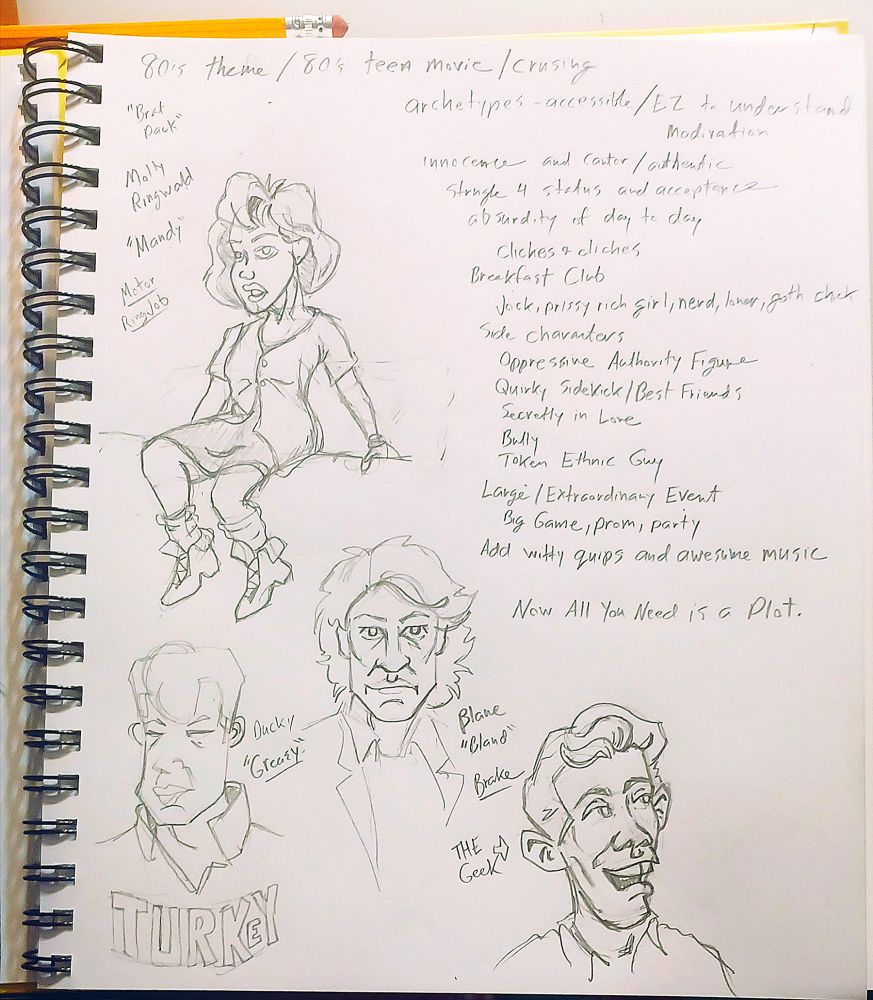 80's theme / 80's teen movie / crusing
archetypes - accessible / EZ to understand
modivation
innocence and cantor / authentic
strugle 4 status and acceptance
absurdity of day to day
Clickes & cliches
Breakfast Club
Jock, prissy rich girl, nerd, loner, goth chick
Side Characters
Oppressive Authority Figure
Quirky Sidekick / Best Friends
Secretly in Love
Bully
Token Ethnic Guy
Large / Extraordinary Event
Big Game, prom, party
Add witty quips and awesome music
Now All You Need is a Plot.
"Brat
Pack"
Molly
Ringwald
"Mandy"
Motor
RingJob
Ducky
"Greazy"
Blane
"Bland"
Brake
THE
Geek
TURKEY